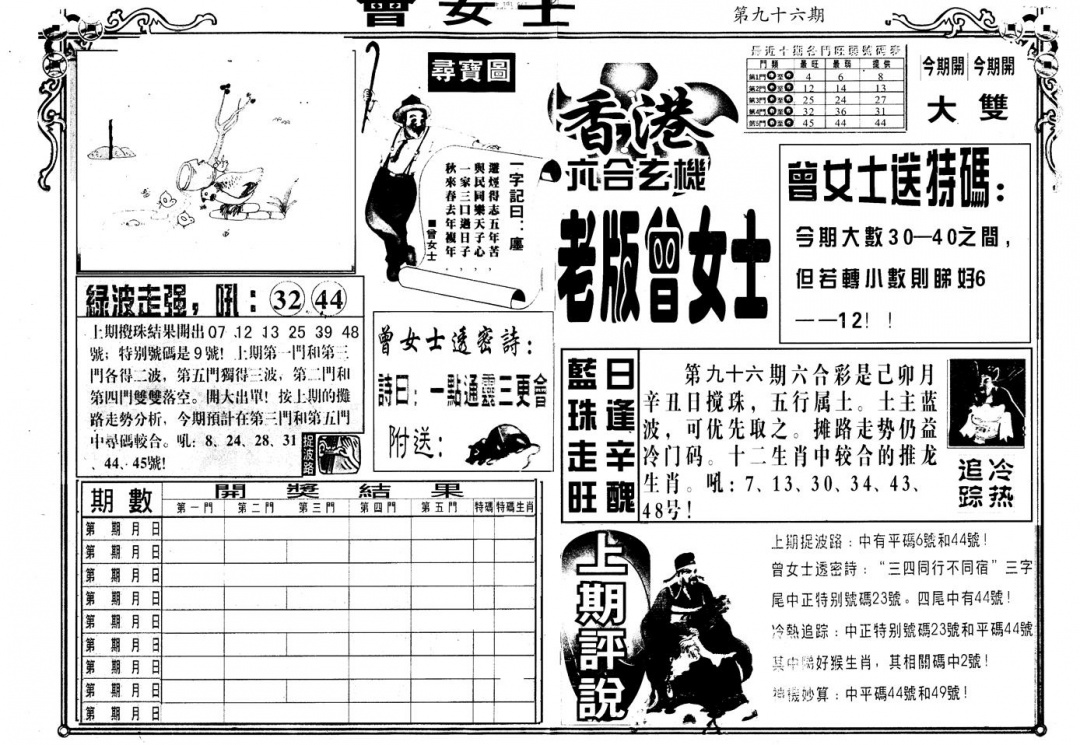 曾女士
第九十六期
尋寶圖
一字記曰：廛
還煙得志五年苦，
與民同樂天子心，
一家三口過日子，
秋來春去年複年。
■曾女士
香港
六合玄機
老版曾女士
最近十期各門旺弱號碼表
門類 最旺 最弱 提供
第1門 至 4 6 8
第2門 至 12 14 13
第3門 至 25 24 27
第4門 至 32 36 31
第5門 至 45 44 44
今期開 今期開
大 雙
曾女士送特碼：
今期大數30—40之間，
但若轉小數則睇好6
——12！！
綠波走强，吼：32 44
上期攪珠結果開出07 12 13 25 39 48
號；特別號碼是9號！上期第一門和第三
門各得二波，第五門獨得三波，第二門和
第四門雙雙落空。開大出單！按上期的攤
路走勢分析，今期預計在第三門和第五門
中尋碼較合。吼：8、24、28、31
、44、45號！
捉波路
曾女士透密詩：
詩曰：一點通靈三更會
附送：
藍珠走旺
日逢辛醜
第九十六期六合彩是己卯月
辛丑日搅珠，五行属土。土主蓝
波，可优先取之。摊路走势仍益
冷门码。十二生肖中较合的推龙
生肖。吼：7、13、30、34、43、
48号！
冷热
追踪
期數 開獎結果
第一門 第二門 第三門 第四門 第五門 特碼 特碼生肖
第 期 月 日
第 期 月 日
第 期 月 日
第 期 月 日
第 期 月 日
第 期 月 日
第 期 月 日
第 期 月 日
第 期 月 日
上期評說
上期捉波路：中有平碼6號和44號！
曾女士透密詩：“三四同行不同宿”三字
尾中正特別號碼23號。四尾中有44號！
冷熱追踪：中正特别號碼23號和平碼44號
其中睇好猴生肖，其相關碼中2號！
神機妙算：中平碼44號和49號！